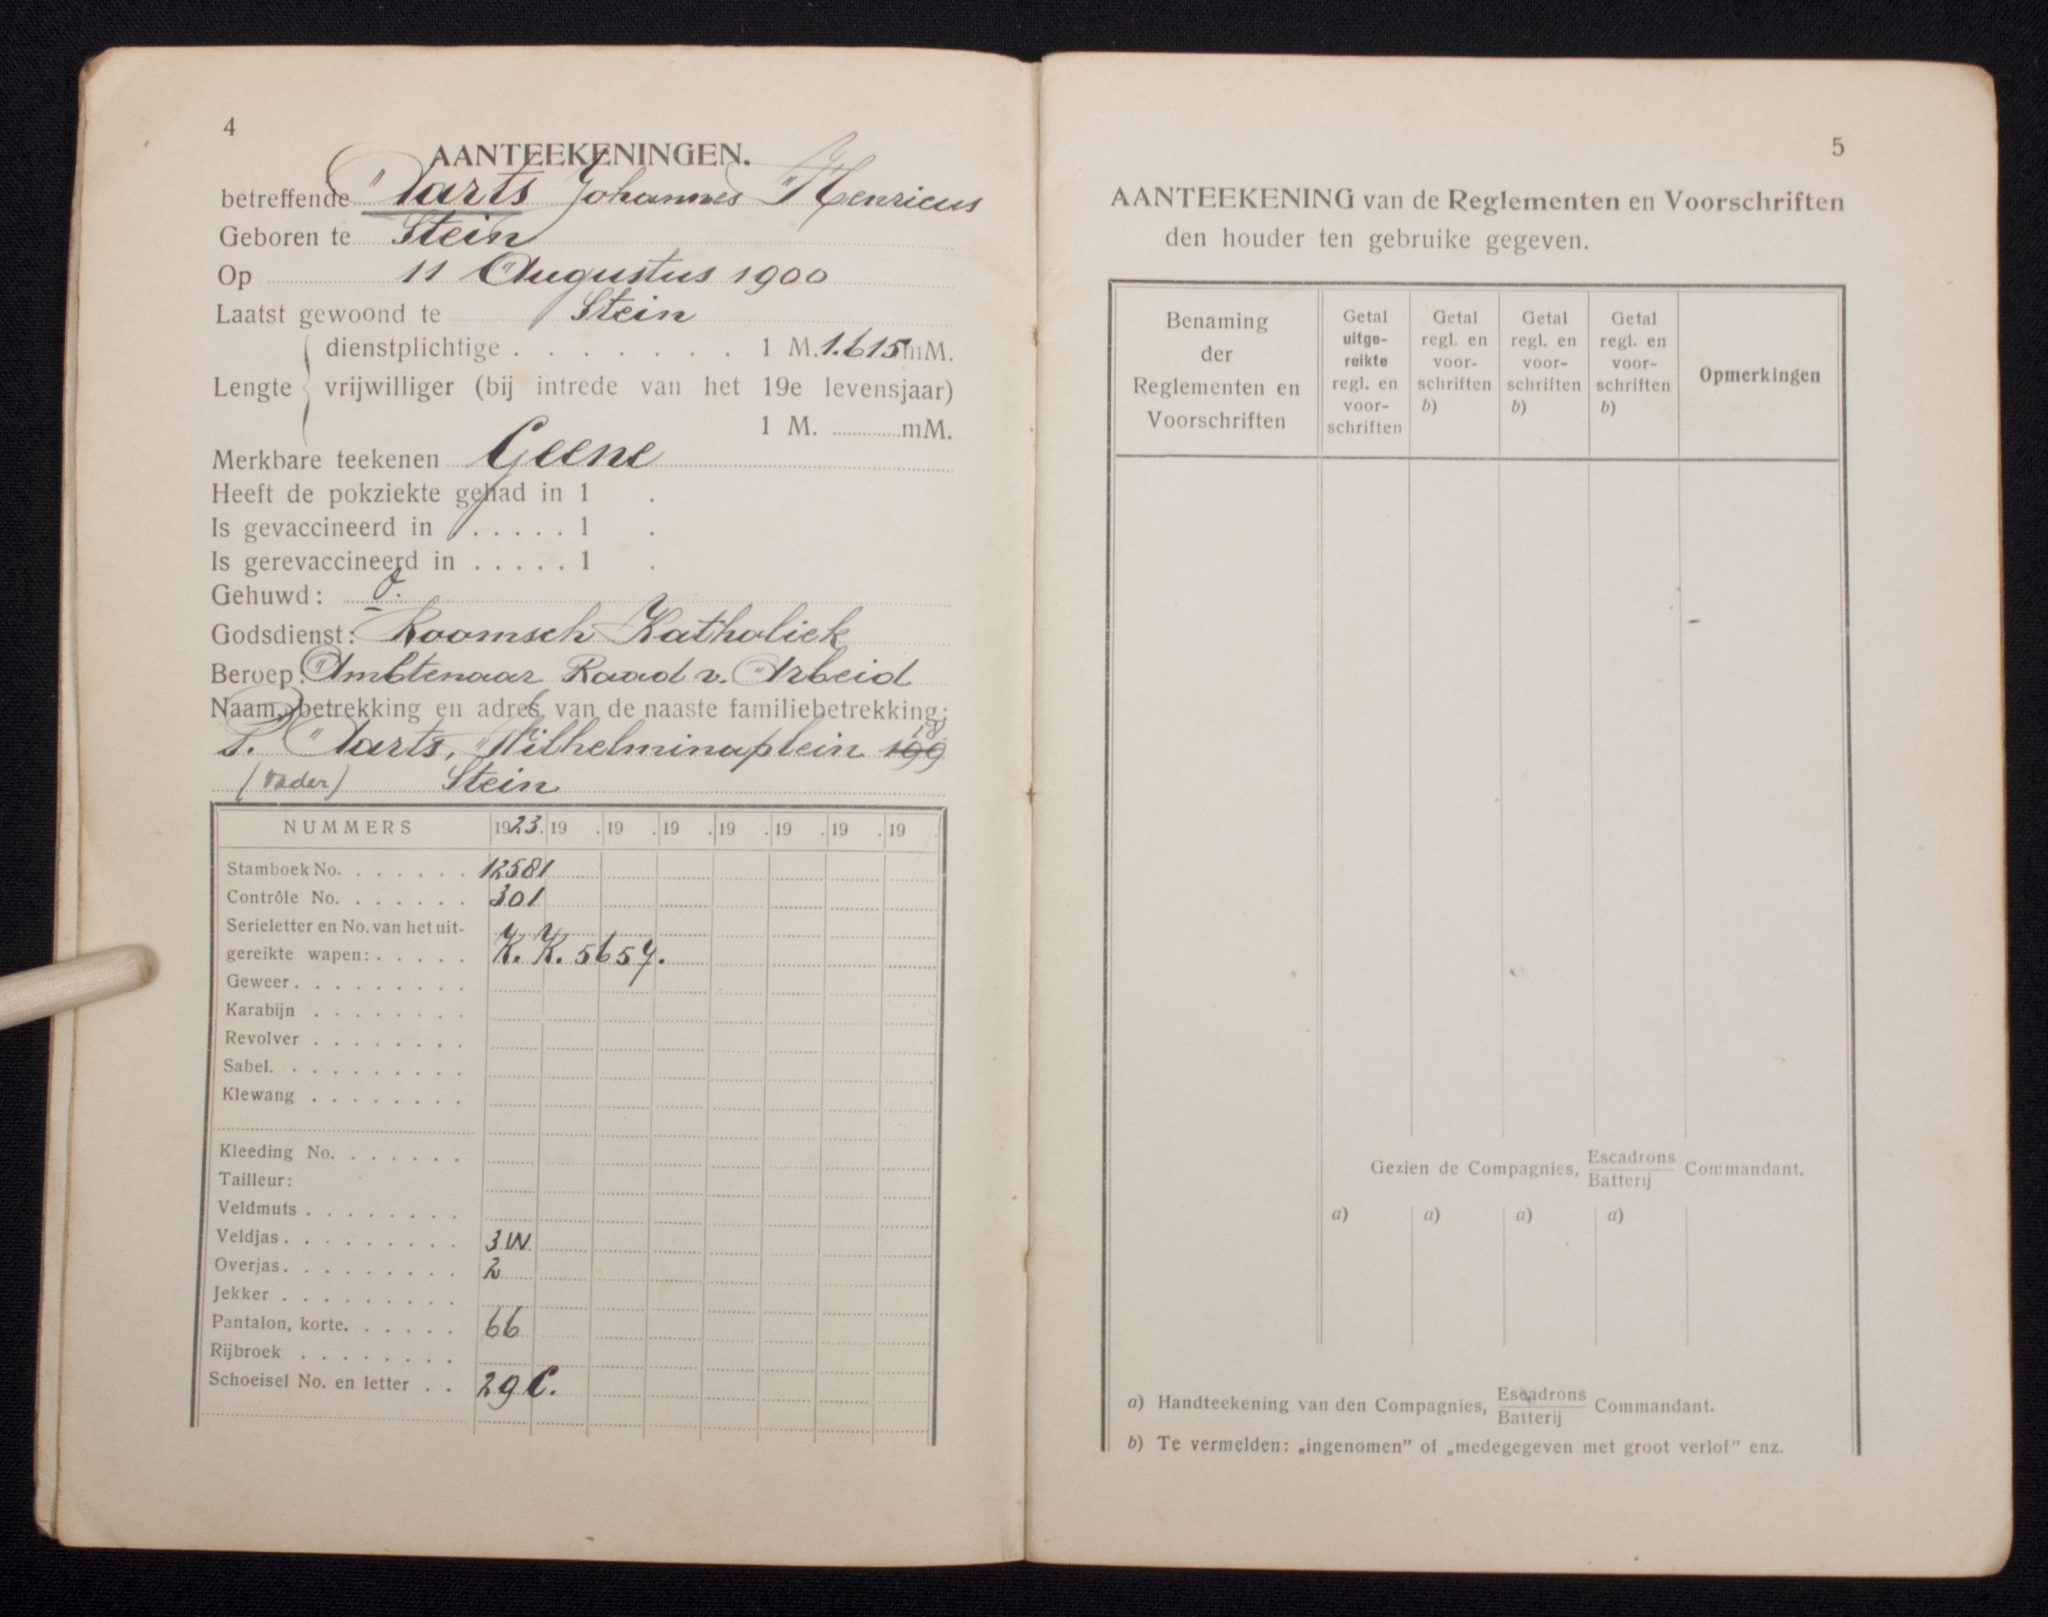 4
AANTEEKENINGEN.
betreffende Aarts Johannes Henricus
Geboren te Stein
Op 11 Augustus 1900
Laatst gewoond te Stein
dienstplichtige . . . . . . . 1 M. 1.615 mM.
Lengte vrijwilliger (bij intrede van het 19e levensjaar)
1 M. mM.
Merkbare teekenen Geene
Heeft de pokziekte gehad in 1 .
Is gevaccineerd in . . . . . 1 .
Is gerevaccineerd in . . . . . 1 .
Gehuwd:
Godsdienst: Roomsch Katholiek
Beroep: Ambtenaar Raad v. Arbeid
Naam, betrekking en adres van de naaste familiebetrekking:
P. Aarts, Wilhelminaplein 199 18
(Vader) Stein
NUMMERS 1923. 19 . 19 . 19 . 19 . 19 . 19 . 19
Stamboek No. . . . . . . 12581
Contrôle No. . . . . . . 301
Serieletter en No. van het uit-
gereikte wapen: . . . . . K. K. 5657.
Geweer . . . . . . . . .
Karabijn . . . . . . . .
Revolver . . . . . . . .
Sabel. . . . . . . . . .
Klewang . . . . . . . .
Kleeding No. . . . . . .
Tailleur:
Veldmuts . . . . . . . .
Veldjas . . . . . . . . . 3 W
Overjas . . . . . . . . . 2
Jekker . . . . . . . . .
Pantalon, korte. . . . . . 66
Rijbroek . . . . . . . .
Schoeisel No. en letter . . 29 C.
5
AANTEEKENING van de Reglementen en Voorschriften
den houder ten gebruike gegeven.
Benaming
der
Reglementen en
Voorschriften
Getal
uitge-
reikte
regl. en
voor-
schriften
Getal
regl. en
voor-
schriften
b)
Getal
regl. en
voor-
schriften
b)
Getal
regl. en
voor-
schriften
b)
Opmerkingen
Gezien de Compagnies, Escadrons Batterij Commandant.
a) a) a) a)
a) Handteekening van den Compagnies, Escadrons Batterij Commandant.
b) Te vermelden: „ingenomen” of „medegegeven met groot verlof” enz.